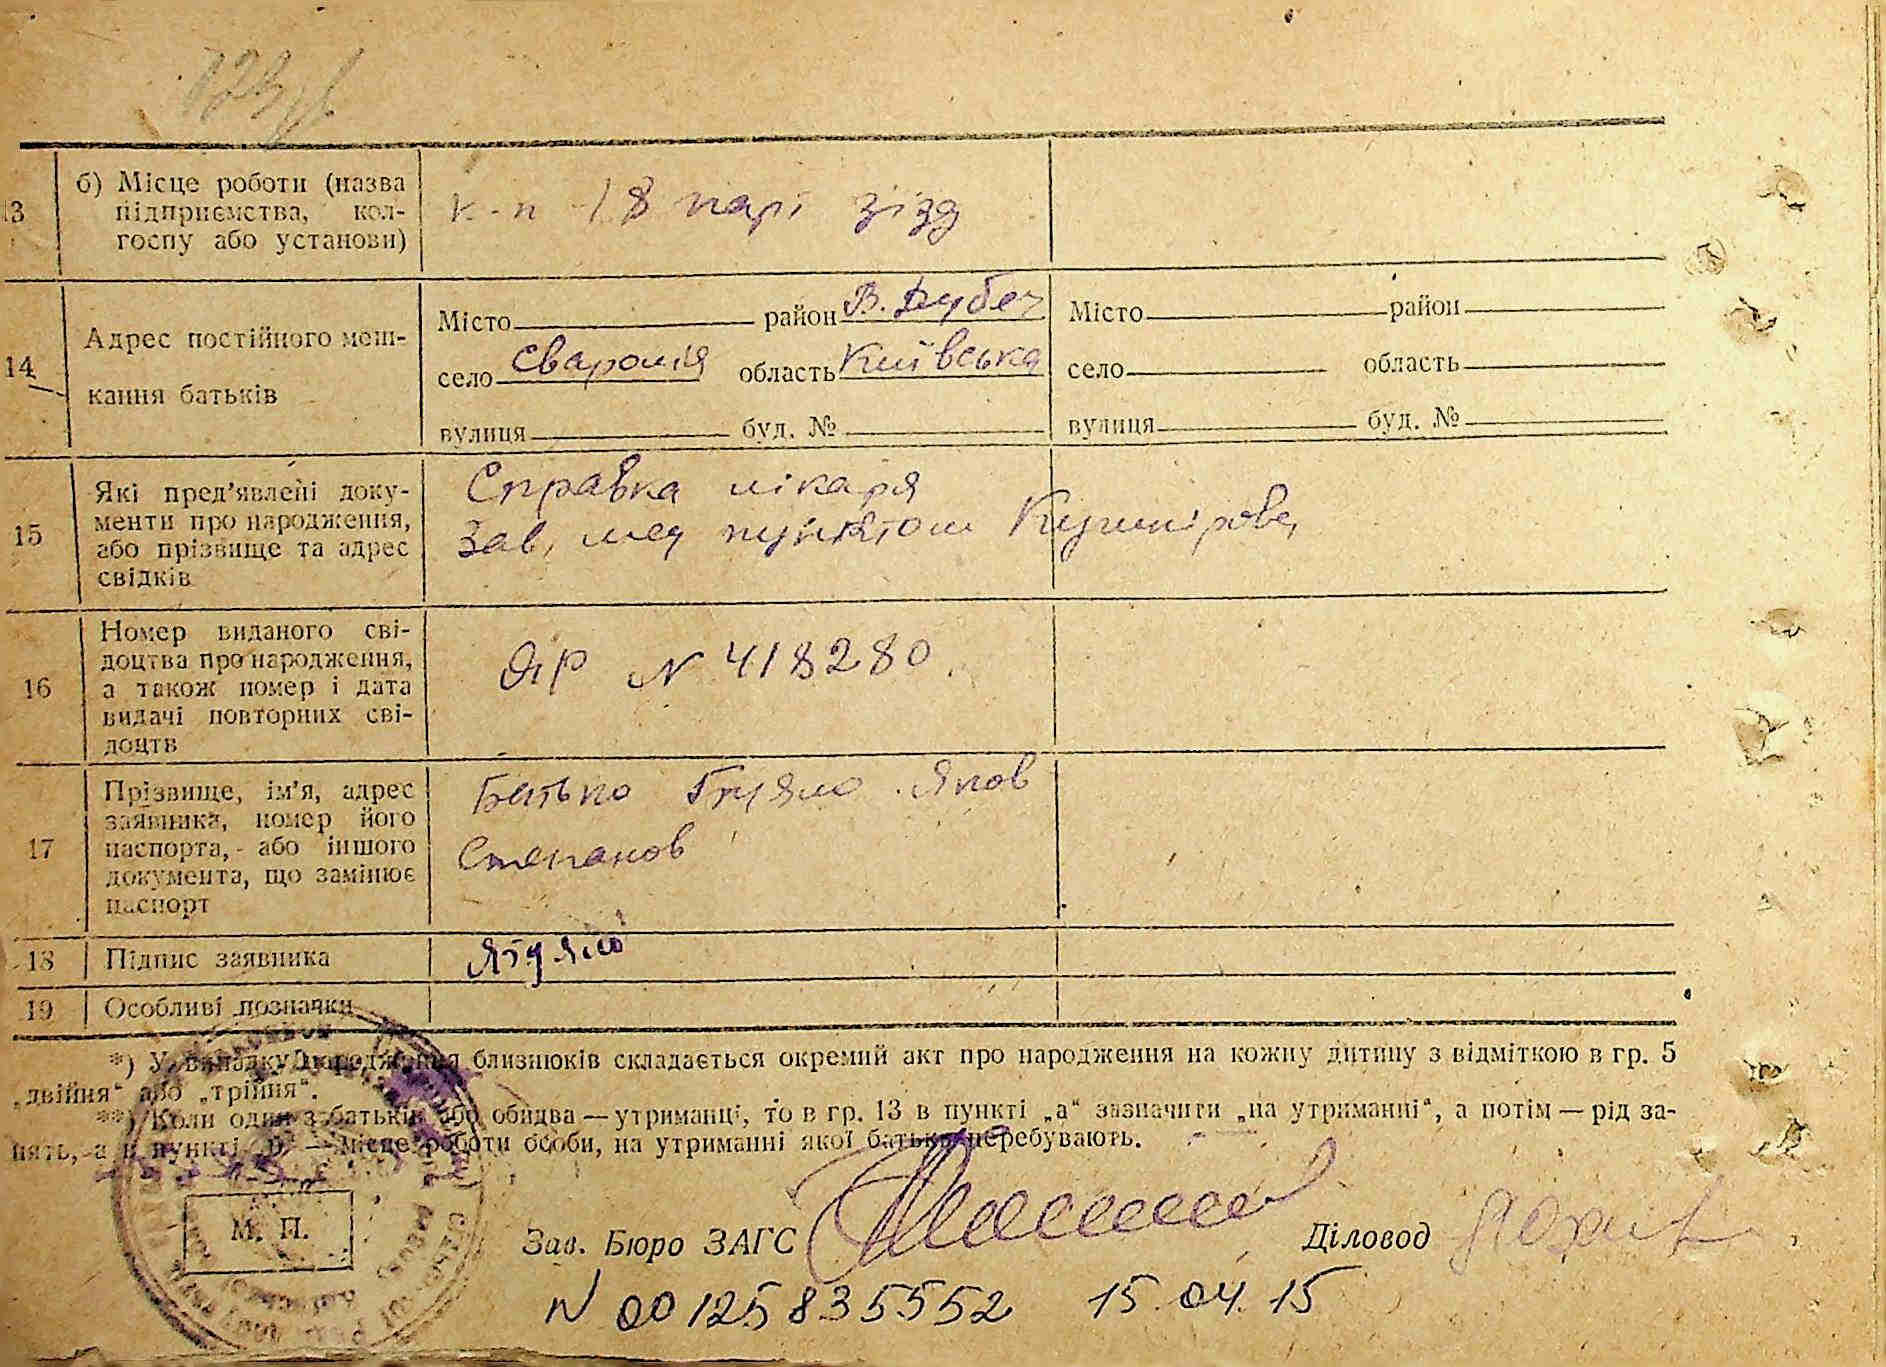 13
б) Місце роботи (назва
підприємства, кол-
госпу або установи)
к-п 18 парт зізд
14
Адрес постійного меш-
кання батьків
Місто район В. Дубеч
село Сваромія область Київська
вулиця буд. №
Місто район
село область
вулиця буд. №
15
Які пред’явлені доку-
менти про народження,
або прізвище та адрес
свідків
Справка лікаря
Зав. мед пунктом
16
Номер виданого сві-
доцтва про народження,
а також номер і дата
видачі повторних сві-
доцтв
N 418280
17
Прізвище, ім’я, адрес
заявника, номер його
паспорта, або іншого
документа, що замінює
паспорт
Батько Яков
Степанов
18
Підпис заявника
19
Особливі позначки
*) У випадку народження близнюків складається окремий акт про народження на кожну дитину з відміткою в гр. 5
„двійня“ або „трійня“.
**) Коли один з батьків або обидва — утриманці, то в гр. 13 в пункті „а“ зазначити „на утриманні“, а потім — рід за-
нять, а в пункті „б“ — місце роботи особи, на утриманні якої батьки перебувають.
М. П.
Зав. Бюро ЗАГС
Діловод
N 00125835552 15.04.15